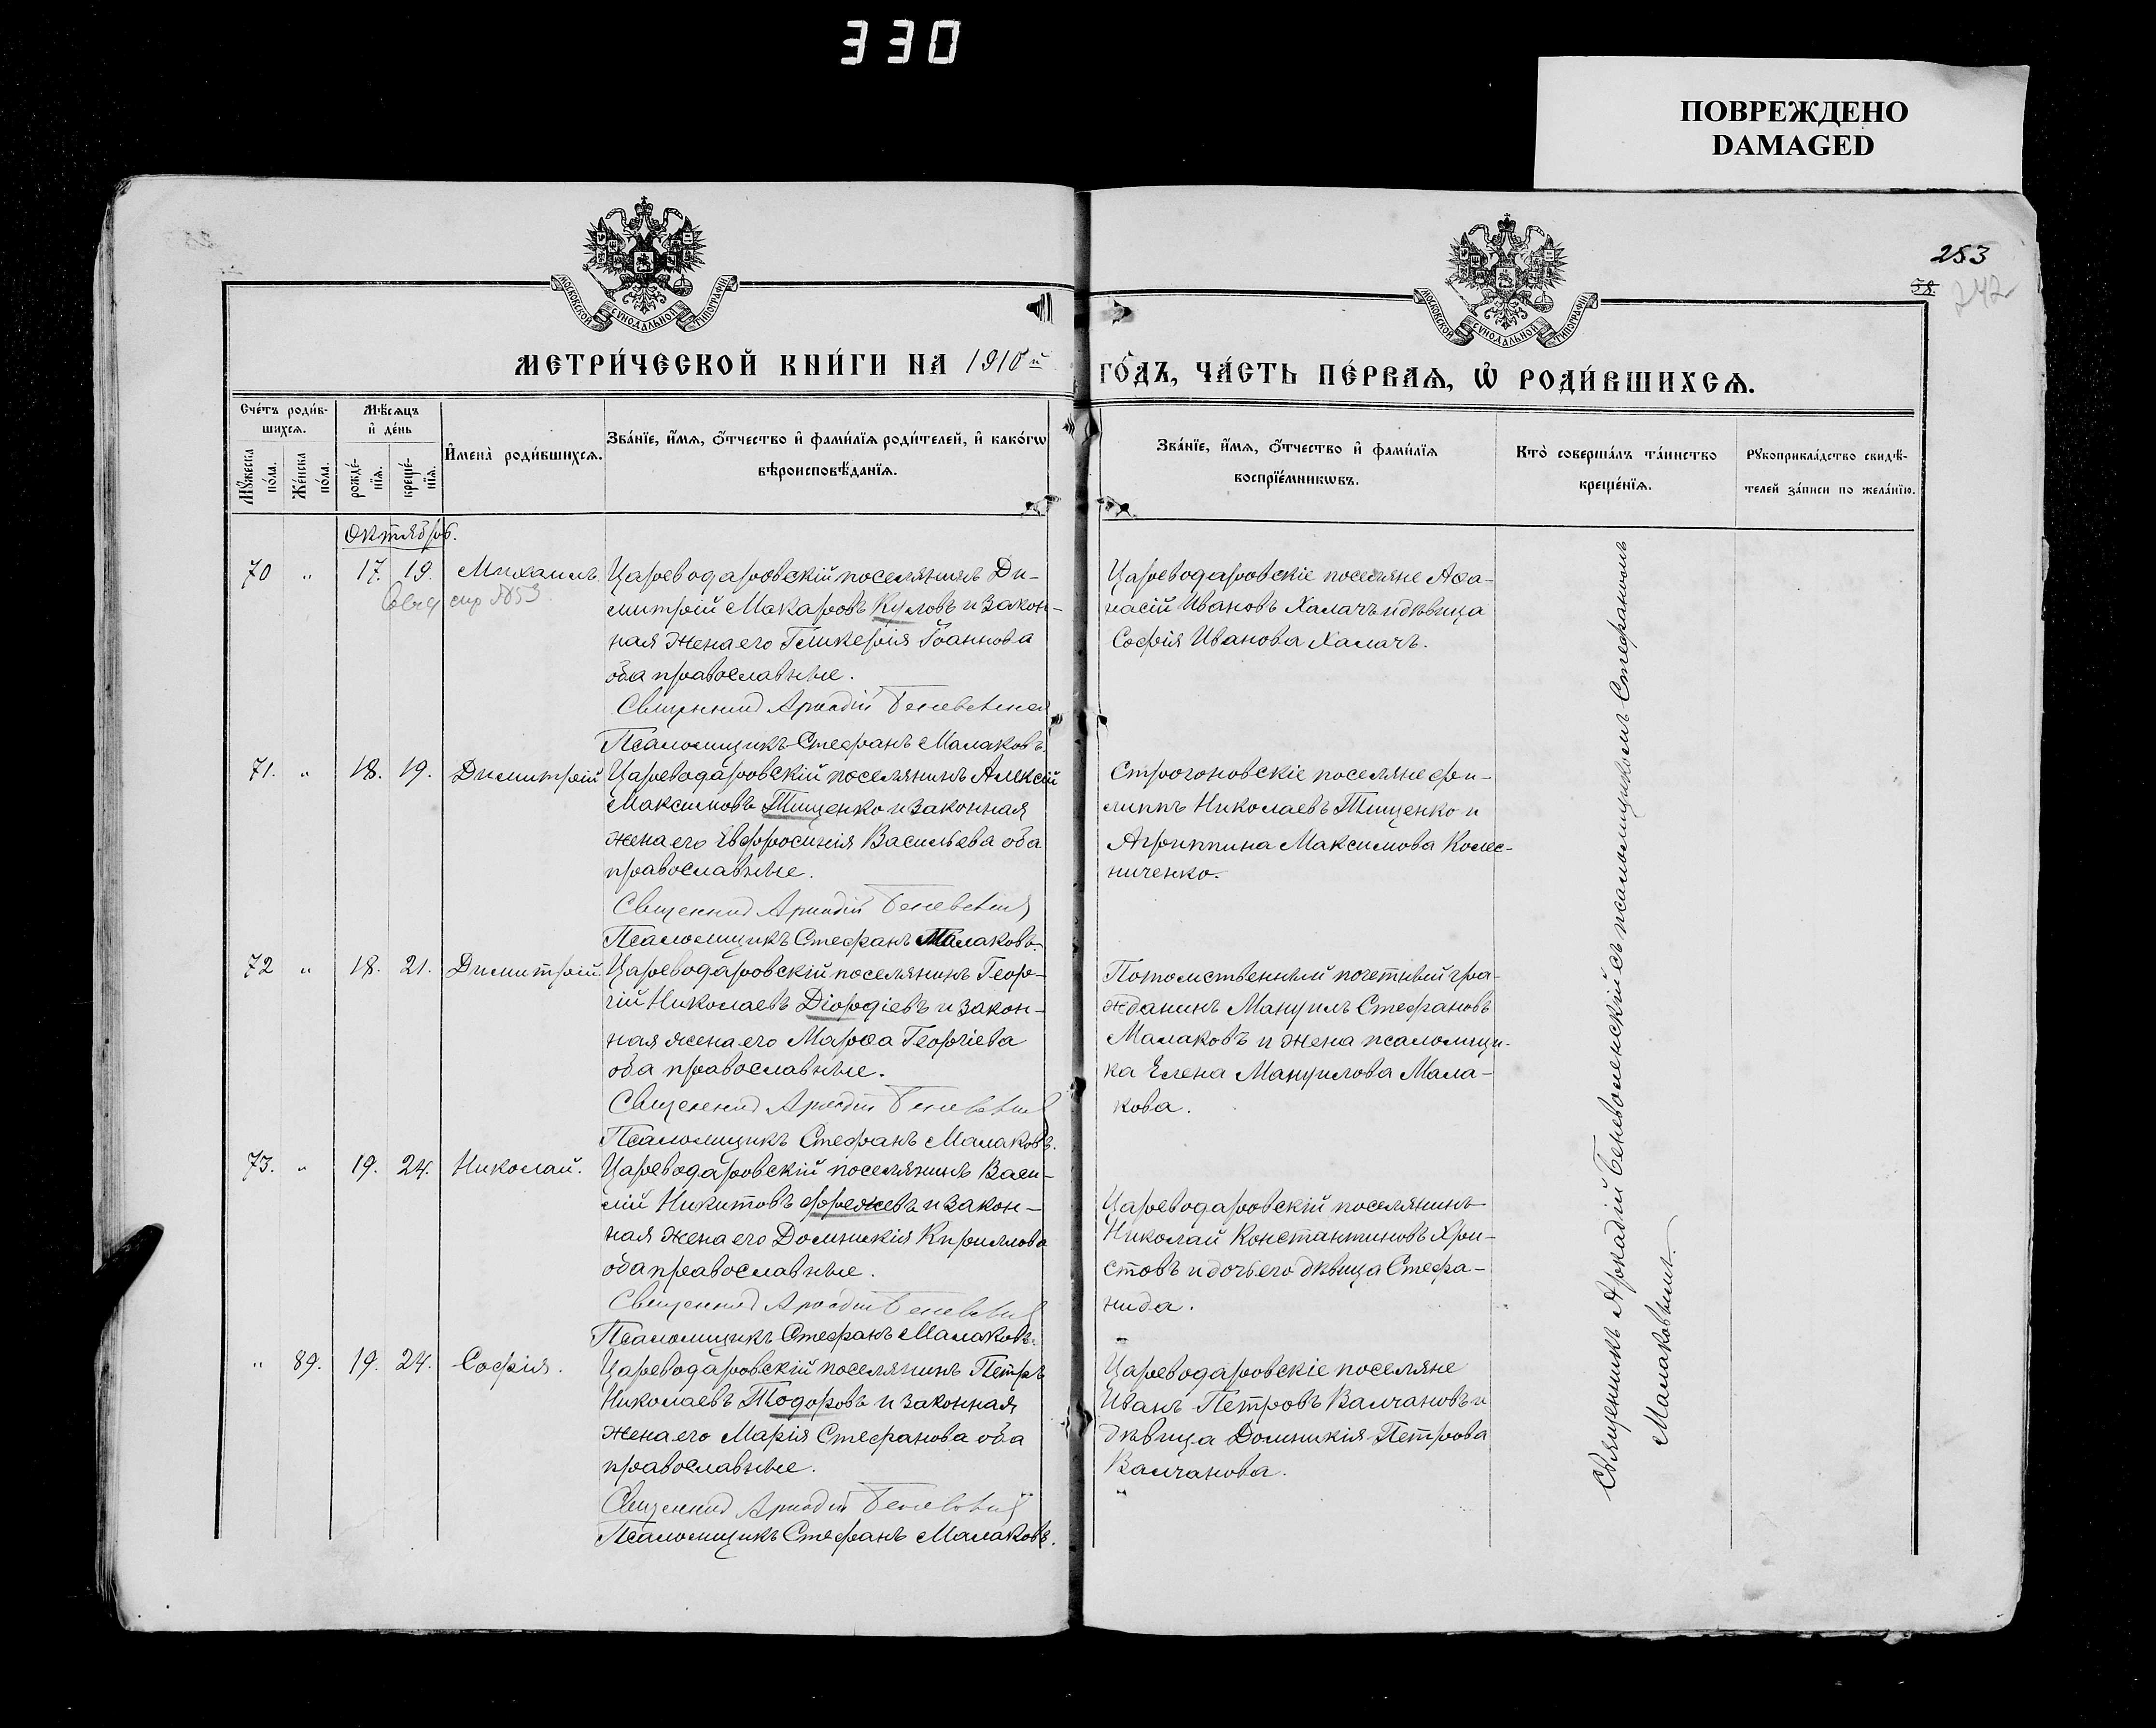 330
ПОВРЕЖДЕНО
DAMAGED
253
58.
242
МОСКОВСКОЙ СѴНОДАЛЬНОЙ ТИПОГРАФІИ
МОСКОВСКОЙ СѴНОДАЛЬНОЙ ТИПОГРАФІИ
МЕТРИ́ЧЕСКОЙ КНИ́ГИ НА 1910й
ГО́ДЪ, ЧА́СТЬ ПЕ́РВАѦ, Ѡ҆ РОДИ́ВШИХСѦ.
Сче́тъ роди́в-
шихсѧ.
Мꙋ́жеска
по́ла.
Же́нска
по́ла.
Мѣ́сѧцъ
и҆ де́нь
рожде́-
нїѧ.
креще́-
нїѧ.
И҆мена̀ роди́вшихсѧ.
Зва́нїе, и҆́мѧ, ѻ҆́тчество и҆ фами́лїѧ роди́телей, и҆ како́гѡ
вѣроисповѣ́данїѧ.
Зва́нїе, и҆́мѧ, ѻ҆́тчество и҆ фами́лїѧ
воспрїе́мникѡвъ.
Кто̀ соверша́лъ та́инство
креще́нїѧ.
Рꙋкоприкла́дство свидѣ́-
телей за́писи по жела́нїю.
Октябрь.
70 " 17. 19. Михаилъ
Цареводаровскій поселянинъ Ди-
митрій Макаровъ Курловъ и закон-
ная жена его Гликерія Іоаннова
оба православные.
Священникъ Аркадій Беневоленскій
Псаломщикъ Стефанъ Малаковъ.
Цареводаровскіе поселяне Аѳа-
насій Ивановъ Халачъ и дѣвица
Софія Иванова Халачъ.
71. " 18. 19. Димитрій
Цареводаровскій поселянинъ Алексій
Максимовъ Тищенко и законная
жена его Евфросинія Васильева оба
православные.
Священникъ Аркадій Беневоленскій
Псаломщикъ Стефанъ Малаковъ.
Строгоновскіе поселяне Фи-
липпъ Николаевъ Тищенко и
Агриппина Максимова Колес-
ниченко.
72 " 18. 21. Димитрій.
Цареводаровскій поселянинъ Геор-
гій Николаевъ Діордіевъ и закон-
ная жена его Марѳа Георгіева
оба православные.
Священникъ Аркадій Беневоленскій
Псаломщикъ Стефанъ Малаковъ.
Потомственный почетный гра-
жданинъ Мануилъ Стефановъ
Малаковъ и жена псаломщи-
ка Елена Мануилова Мала-
кова.
73. " 19. 24. Николай.
Цареводаровскій поселянинъ Васи-
лій Никитовъ Фрежевъ и закон-
ная жена его Домникія Кириллова
оба православные.
Священникъ Аркадій Беневоленскій
Псаломщикъ Стефанъ Малаковъ.
Цареводаровскій поселянинъ
Николай Константиновъ Хри-
стовъ и дочь его дѣвица Стефа-
нида.
" 89. 19. 24. Софія.
Цареводаровскій поселянинъ Петръ
Николаевъ Тодоровъ и законная
жена его Марія Стефанова оба
православные.
Священникъ Аркадій Беневоленскій
Псаломщикъ Стефанъ Малаковъ.
Цареводаровскіе поселяне
Иванъ Петровъ Валчановъ и
дѣвица Домникія Петрова
Валчанова.
Священникъ Аркадій Беневоленскій съ псаломщикомъ Стефаномъ
Малаковымъ.